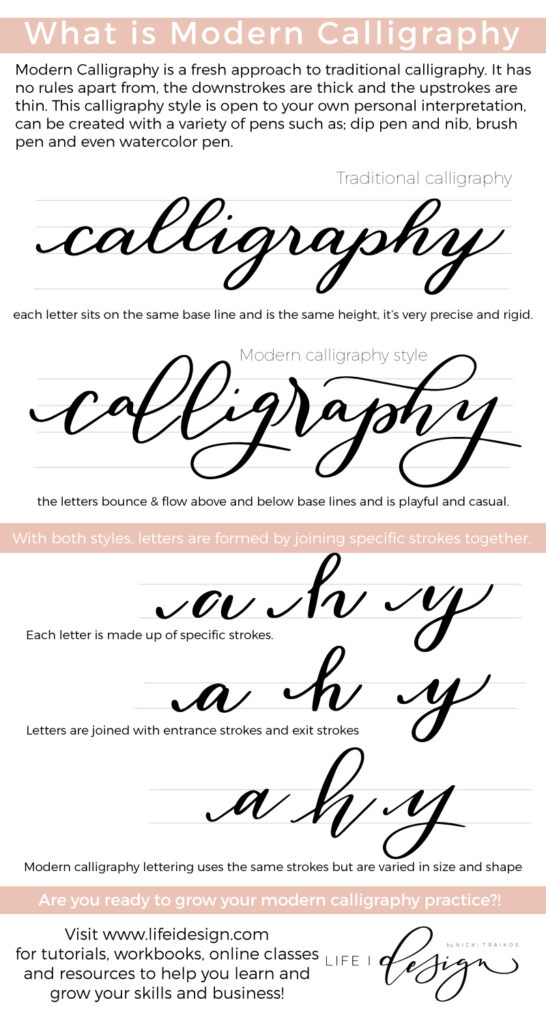 What is Modern Calligraphy
Modern Calligraphy is a fresh approach to traditional calligraphy. It has
no rules apart from, the downstrokes are thick and the upstrokes are
thin. This calligraphy style is open to your own personal interpretation,
can be created with a variety of pens such as; dip pen and nib, brush
pen and even watercolor pen.
Traditional calligraphy
calligraphy
each letter sits on the same base line and is the same height, it's very precise and rigid.
Modern calligraphy style
calligraphy
the letters bounce & flow above and below base lines and is playful and casual.
With both styles, letters are formed by joining specific strokes together.
a h y
Each letter is made up of specific strokes.
a h y
Letters are joined with entrance strokes and exit strokes
a h y
Modern calligraphy lettering uses the same strokes but are varied in size and shape
Are you ready to grow your modern calligraphy practice?!
Visit www.lifeidesign.com
for tutorials, workbooks, online classes
and resources to help you learn and
grow your skills and business!
by NICKI TRAIKOS
LIFE I design